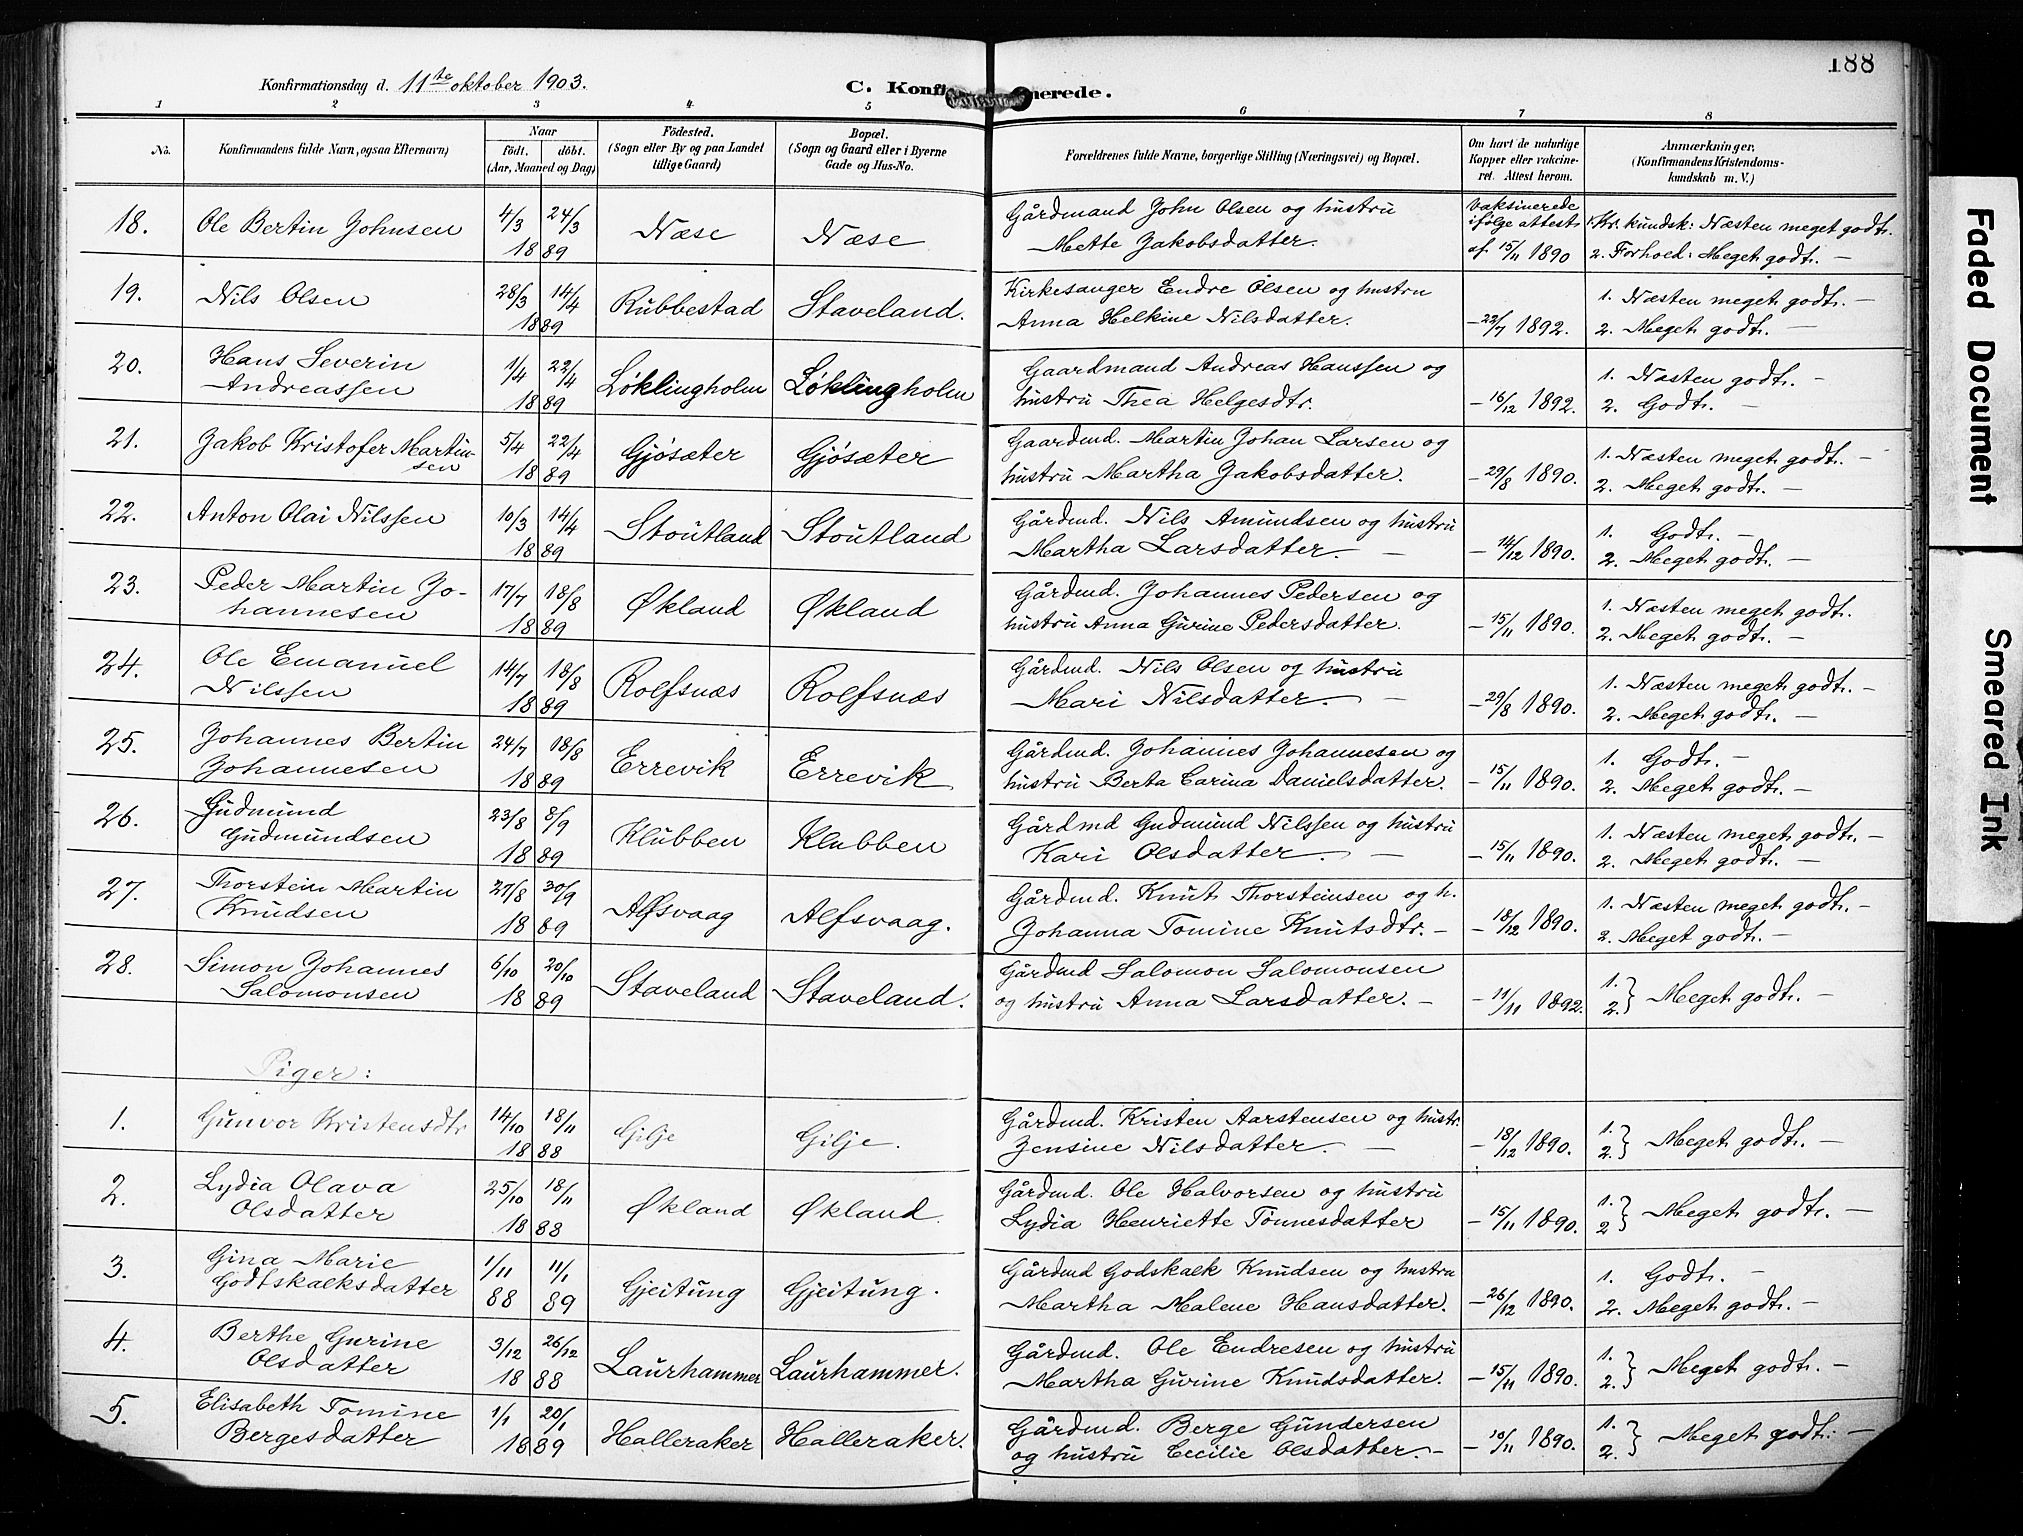 188
Konfirmationsdag d. 11te oktober 1903.
C. Konfi nerede.
1 2 3 4 5 6 7 8
No.
Konfirmandens fulde Navn, ogsaa Efternavn)
Naar
födt. döbt.
(Aar, Maaned og Dag)
Födested.
(Sogn eller By og paa Landet
tillige Gaard)
Bopæl.
(Sogn og Gaard eller i Byerne
Gade og Hus-No.
Forældrenes fulde Navne, borgerlige Stilling (Næringsvei) og Bopæl.
Om havt de naturlige
Kopper eller vakcine-
ret. Attest herom.
Anmærkninger.
(Konfirmandens Kristendoms-
kundskab m. V.)
18. Ole Bertin Johnsen 4/3 24/3 1889 Næse Næse
Gårdmand John Olsen og hustru
Mette Jakobsdatter.
Vaksinerede
ifölge attest
af 15/11 1890
1. Kr. kundsk: Næsten meget godt.
2. Forhold: Meget godt. —
19. Nils Olsen 28/3 14/4 1889 Rubbestad Staveland.
Kirkesanger Endre Olsen og hustru
Anna Helkine Nilsdatter.
— 22/7 1892.
1. Næsten meget godt. —
2. Meget godt. —
20. Hans Severin
Andreassen 1/4 22/4 1889 Løklingholm Løklingholm
Gaardmand Andreas Hanssen og
hustru Thea Helgesdtr.
— 16/12 1892.
1. Næsten godt. —
2. Godt. —
21. Jakob Kristofer Martin-
sen 5/4 22/4 1889 Gjøsæter Gjøsæter
Gaardmd. Martin Johan Larsen og
hustru Martha Jakobsdatter.
— 29/8 1890.
1. Næsten meget godt. —
2. Meget godt. —
22. Anton Olai Nilssen 10/3 14/4 1889 Stoutland Stoutland
Gårdmd. Nils Amundsen og hustru
Martha Larsdatter. —
— 14/12 1890.
1. Godt. —
2. Meget godt. —
23. Peder Martin Jo-
hannesen 17/7 18/8 1889 Økland Økland
Gårdmd. Johannes Pedersen og
hustru Anna Gurine Pedersdatter.
— 15/11 1890.
1. Næsten meget godt.
2. Meget godt. —
24. Ole Emanuel
Nilssen 14/7 18/8 1889 Rolfsnæs Rolfsnæs
Gårdmd. Nils Olsen og hustru
Mari Nilsdatter. —
— 29/8 1890.
1. Næsten meget godt. —
2. Meget godt. —
25. Johannes Bertin
Johannesen 24/7 18/8 1889 Errevik Errevik
Gårdmd. Johannes Johannesen og
hustru Berta Carina Danielsdatter.
— 15/11 1890.
1. Godt. —
2. Meget godt. —
26. Gudmund
Gudmundsen 23/8 8/9 1889 Klubben Klubben
Gårdmd Gudmund Nilssen og hustru
Kari Olsdatter. —
— 15/11 1890.
1. Næsten meget godt. —
2. Meget godt. —
27. Thorstein Martin
Knudsen 27/8 30/9 1889 Alfsvaag Alfsvaag.
Gårdmd. Knut Thorsteinsen og h.
Johanna Tomine Knutsdtr. —
— 18/12 1890.
1. Næsten meget godt. —
2. Meget godt. —
28. Simon Johannes
Salomonsen 6/10 20/10 1889 Staveland Staveland.
Gårdmd Salomon Salomonsen
og hustru Anna Larsdatter. —
— 11/11 1892.
1.
2. } Meget godt. —
Piger:
1. Gunvor Kristensdtr 14/10 18/11 1888 Gilje Gilje.
Gårdmd. Kristen Aarstensen og hustr.
Jensine Nilsdatter. —
— 18/12 1890.
1.
2. } Meget godt. —
2. Lydia Olava
Olsdatter 25/10 18/11 1888 Økland Økland
Gårdmd. Ole Halvorsen og hustru
Lydia Henriette Tönnesdatter
— 15/11 1890.
1.
2 } Meget godt. —
3. Gina Marie
Godtskalksdatter 1/11 88 11/1 89 Gjeitung Gjeitung.
Gårdmd Godskalk Knudsen og hustru
Martha Malene Hansdatter.
— 26/12 1890.
1. Godt. —
2. Meget godt. —
4. Berthe Gurine
Olsdatter 3/12 26/12 1888 Laurhammer Laurhammer.
Gårdmd. Ole Endresen og hustru
Martha Gurine Knudsdatter.
— 15/11 1890.
1.
2. } Meget godt. —
5. Elisabeth Tomine
Bergesdatter 1/1 20/1 1889 Halleraker Halleraker.
Gårdmd. Berge Gundersen
og hustru Cecilie Olsdatter. —
— 10/11 1890.
1.
2. } Meget godt. —
Faded Document
Smeared Ink